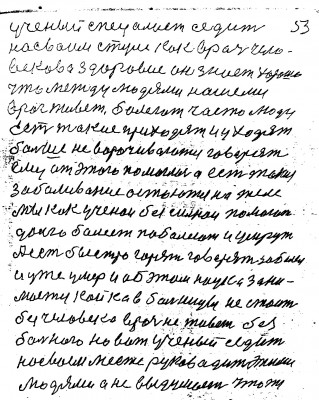 ученый специалист седит 53
насваим стули как врач чело-
векова здаровие он знает харашо
что между людями нашеми
врач живет. балеют часто люди
есть такие приходят и уходят
больше не варочиваются говорят
ему от этого помогли а есть такие
забаливание остаются на деле
мы как ученой без силной помощи
долго балеет побалеют и умрут
а есть быстро горят говорят забыли
и уже умер и об этом наука зани-
мается койка в больницы не стоит
без человека врач не живет без
бального но вот ученый седит
насваем месте рукавадит этими
людями а не выдумает что ж